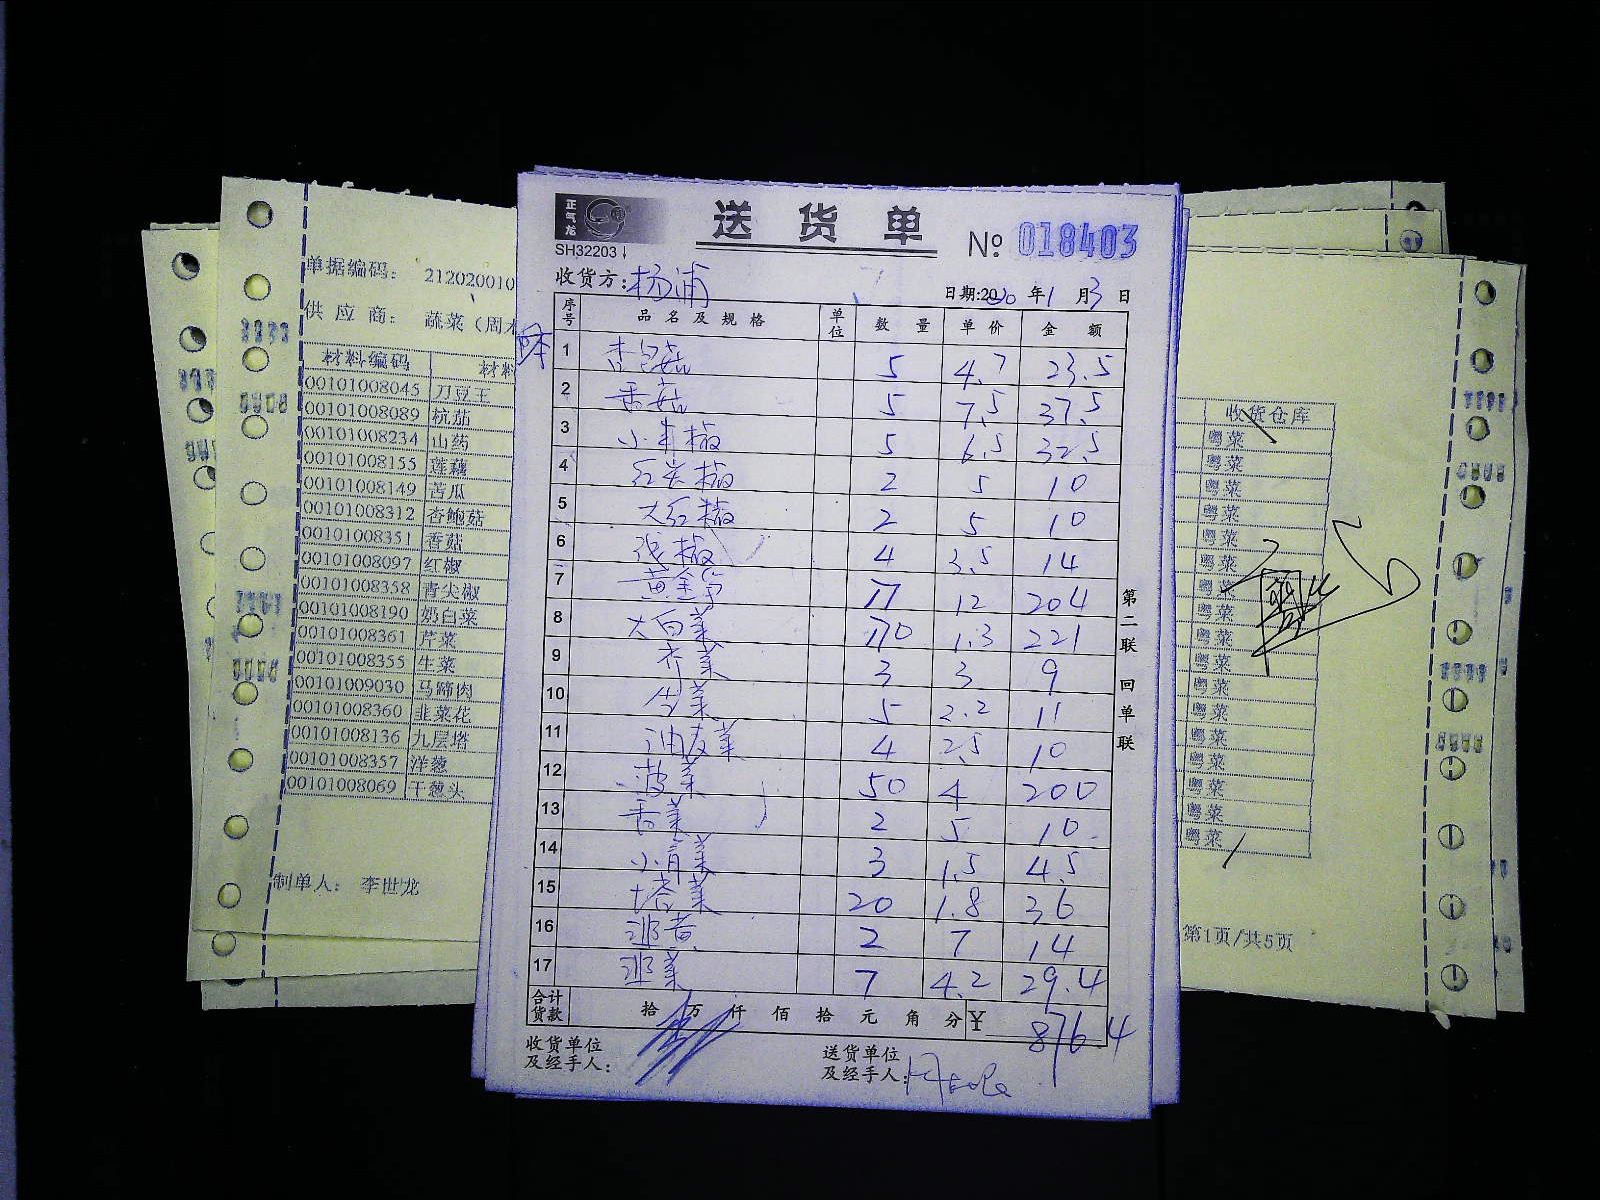 正气龙
送货单
SH32203
№ 018403
收货方:杨浦
日期:2020年1月3日
序号 品名及规格 单位 数量 单价 金额
1 杏包菇 5 4.7 23.5
2 香菇 5 7.5 37.5
3 小青椒 5 6.5 32.5
4 红尖椒 2 5 10
5 大红椒 2 5 10
6 椒 4 3.5 14
7 黄金 17 12 204
8 大白菜 170 1.3 221
9 齐菜 3 3 9
10 生菜 5 2.2 11
11 油友菜 4 2.5 10
12 菠菜 50 4 200
13 香菜 2 5 10
14 小青菜 3 1.5 4.5
15 塔菜 20 1.8 36
16 2 7 14
17 菜 7 4.2 29.4
合计货款 拾 万 仟 佰 拾 元 角 分 ¥ 876.4
收货单位及经手人:
送货单位及经手人:
第二联 回单联
单据编码: 212020010
供应商: 蔬菜（周
材料编码 材料
00101008045 刀豆王
00101008089 杭茄
00101008234 山药
00101008155 莲藕
00101008149 苦瓜
00101008312 杏鲍菇
00101008351 香菇
00101008097 红椒
00101008358 青尖椒
00101008190 奶白菜
00101008361 芹菜
00101008355 生菜
00101009030 马蹄肉
00101008360 韭菜花
00101008136 九层塔
00101008357 洋葱
00101008069 干葱头
制单人: 李世龙
收货仓库
粤菜
粤菜
粤菜
粤菜
粤菜
粤菜
粤菜
粤菜
粤菜
粤菜
粤菜
粤菜
粤菜
粤菜
粤菜
粤菜
粤菜
第1页/共5页